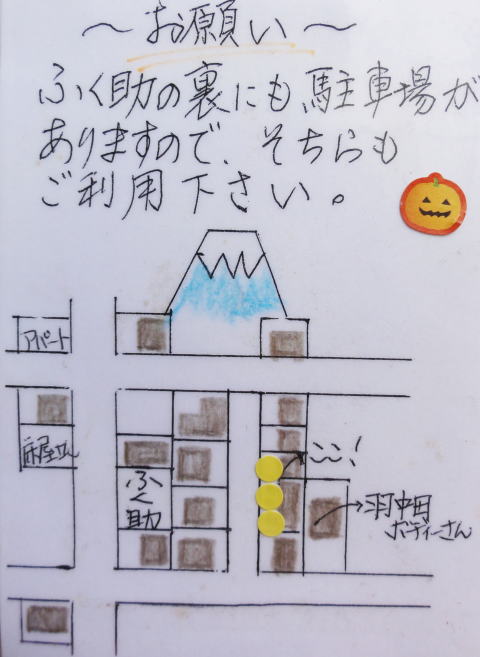 ～お願い～
ふく助の裏にも駐車場が
ありますので、そちらも
ご利用下さい。
アパート
床屋さん
ふく助
ここ!
羽中田
ボディーさん